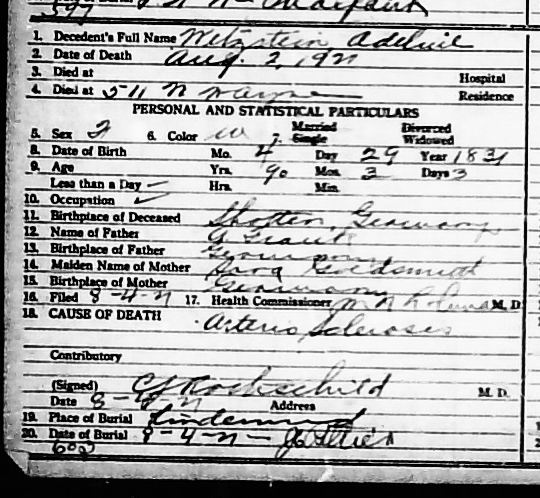 577
1. Decedent's Full Name Wetzstein, Adelheit
2. Date of Death Aug. 2, 1921
3. Died at Hospital
4. Died at 511 N Wayne Residence
PERSONAL AND STATISTICAL PARTICULARS
5. Sex F 6. Color W 7. Married Single Divorced Widowed
8. Date of Birth Mo. 4 Day 29 Year 1831
9. Age Yrs. 90 Mos. 3 Days 3
Less than a Day — Hrs. Min.
10. Occupation ✓
11. Birthplace of Deceased Germany
12. Name of Father
13. Birthplace of Father Germany
14. Maiden Name of Mother Sara Goldsmith
15. Birthplace of Mother Germany
16. Filed 8-4-21 17. Health Commissioner M. D.
18. CAUSE OF DEATH
Arterio Sclerosis
Contributory
(Signed) Rothschild M. D.
Date 8- Address
19. Place of Burial Lindenwood
20. Date of Burial 8-4-21 —
603